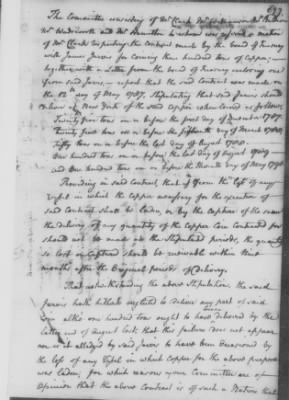 The Committee consisting of Mr Clark Mr
Mr Wadsworth and Mr Hamilton to whom was referred a motion
of Mr Clark respecting the contract made by the board of treasury
with James Jarvis for coining three hundred tons of Copper;
together with a Letter from the board of Treasury enclosing one
from said Jarvis, report that the said contract was made on
the 12th day of May 1787, stipulating that said Jarvis should
deliver at New York of the said Copper when coined as follows,
Twenty five tons on or before the first day of December 1787.
twenty five tons on or before the fifteenth day of March 1788.
fifty tons on or before the last day of August 1788.
One hundred tons on or before the last day of August 1789
and One hundred tons on or before the day of May 1790
Providing in said Contract, that if from the loss of any
Vessel in which the Copper necessary for the execution of
said Contract shall be laden, or by the Capture of the same
the delivery of any quantity of the Copper Coin contracted for
should not be made at the stipulated periods, the quantity
so lost or Captured should be within Nine
months after the Original periods of Delivery.
That notwithstanding the above Stipulation, the said
Jarvis hath hitherto neglected to deliver any part of said
Coin altho one hundred tons ought to have been delivered by the
latter end of August last; that this failure does not appear
nor is it alledged by said Jarvis to have been occasioned by
the loss of any Vessel in which Copper for the above purpose
was laden; for which reasons your Committee are of
Opinion that the above Contract is of such a Nature that